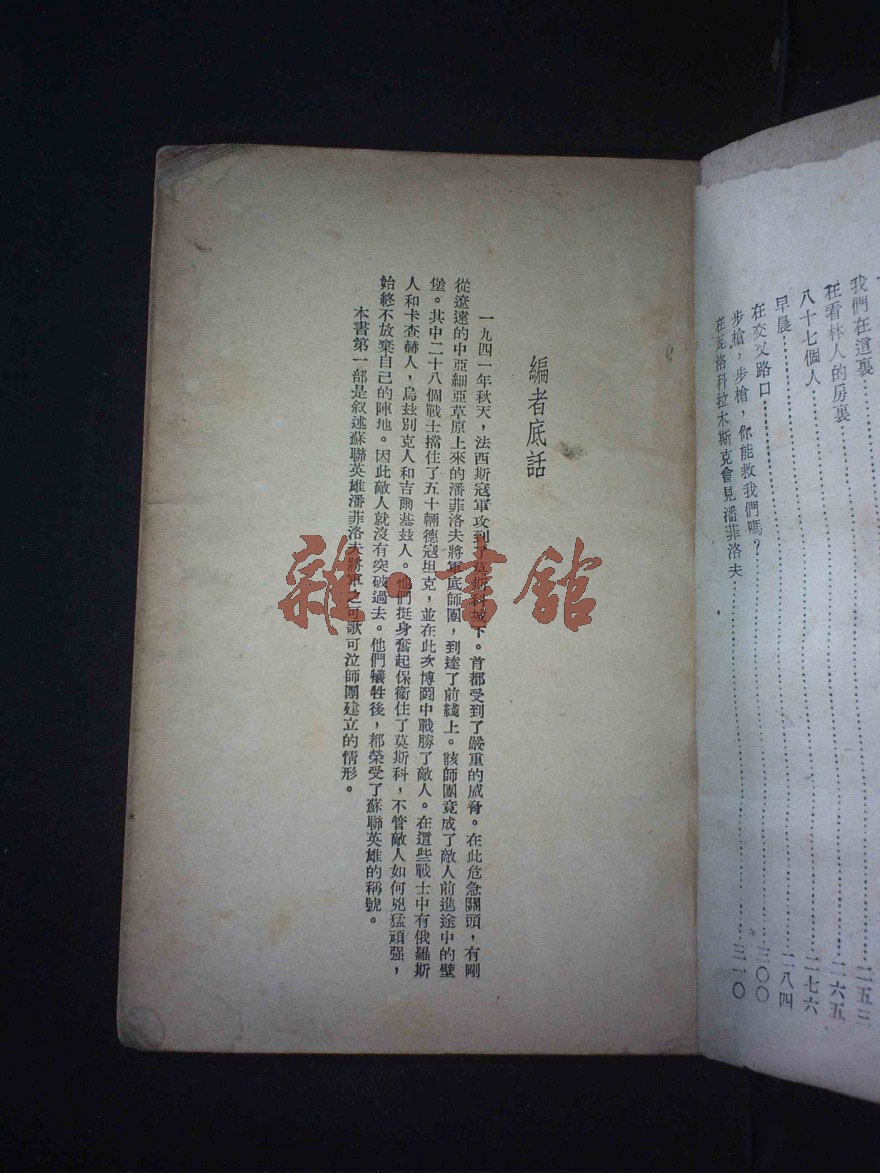 我們在這裏……二五三
在看林人的房裏……二六五
八十七個人……二七六
早晨……二八四
在交叉路口……三〇〇
步槍，步槍，你能救我們嗎？
在瓦洛科拉木斯克會見潘菲洛夫……三一〇
編者底話
一九四一年秋天，法西斯寇軍攻到了莫斯科城下。首都受到了嚴重的威脅。在此危急關頭，有剛
從遼遠的中亞細亞草原上來的潘菲洛夫將軍底師團，到達了前綫上。該師團竟成了敵人前進途中的壁
堡。其中二十八個戰士擋住了五十輛德寇坦克，並在此次博鬪中戰勝了敵人。在這些戰士中有俄羅斯
人和卡查赫人，烏茲別克人和吉爾基茲人。他們挺身奮起保衞住了莫斯科，不管敵人如何兇猛頑强，
始終不放棄自己的陣地。因此敵人就沒有突破過去。他們犧牲後，都榮受了蘇聯英雄的稱號。
本書第一部是叙述蘇聯英雄潘菲洛夫將軍之可歌可泣師團建立的情形。
雜·書舘